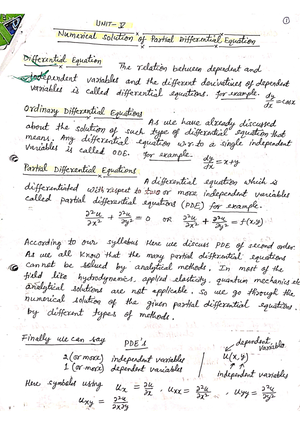 ①
UNIT-V
Numerical Solution of Partial Differential Equation
Differential Equation
The relation between dependent and
independent variables and the different derivatives of dependent
variables is called differential equations. for example. dy/dx = cosx
Ordinary Differential Equations
As we have already discussed
about the solution of such type of differential equation that
means. Any differential equation w.r. to a single independent
variables is called ODE. for example. dy/dx = x+y
Partial Differential Equations
A differential equation which is
differentiated with respect to two or more independent variables
called partial differential equations (PDE) for example.
∂²u/∂x² + ∂²u/∂y² = 0 OR ∂²u/∂x² + ∂²u/∂y² = f(x,y)
According to our syllabus Here we discuss PDE of second order
As we all know that the many partial differential equations
cannot be solved by analytical methods. In most of the
field like hydrodynamics, applied elasticity, quantum mechanics etc
analytical solutions are not applicable. So we go through the
numerical solution of the given partial differential equations
by different types of methods.
Finally we can say PDE's
dependent variable
2 (or more) independent variables
u(x,y)
1 (or more) dependent variables
independent variables
Here symbols using u_x = ∂u/∂x, u_xx = ∂²u/∂x², u_yy = ∂²u/∂y²
u_xy = ∂²u/∂x∂y